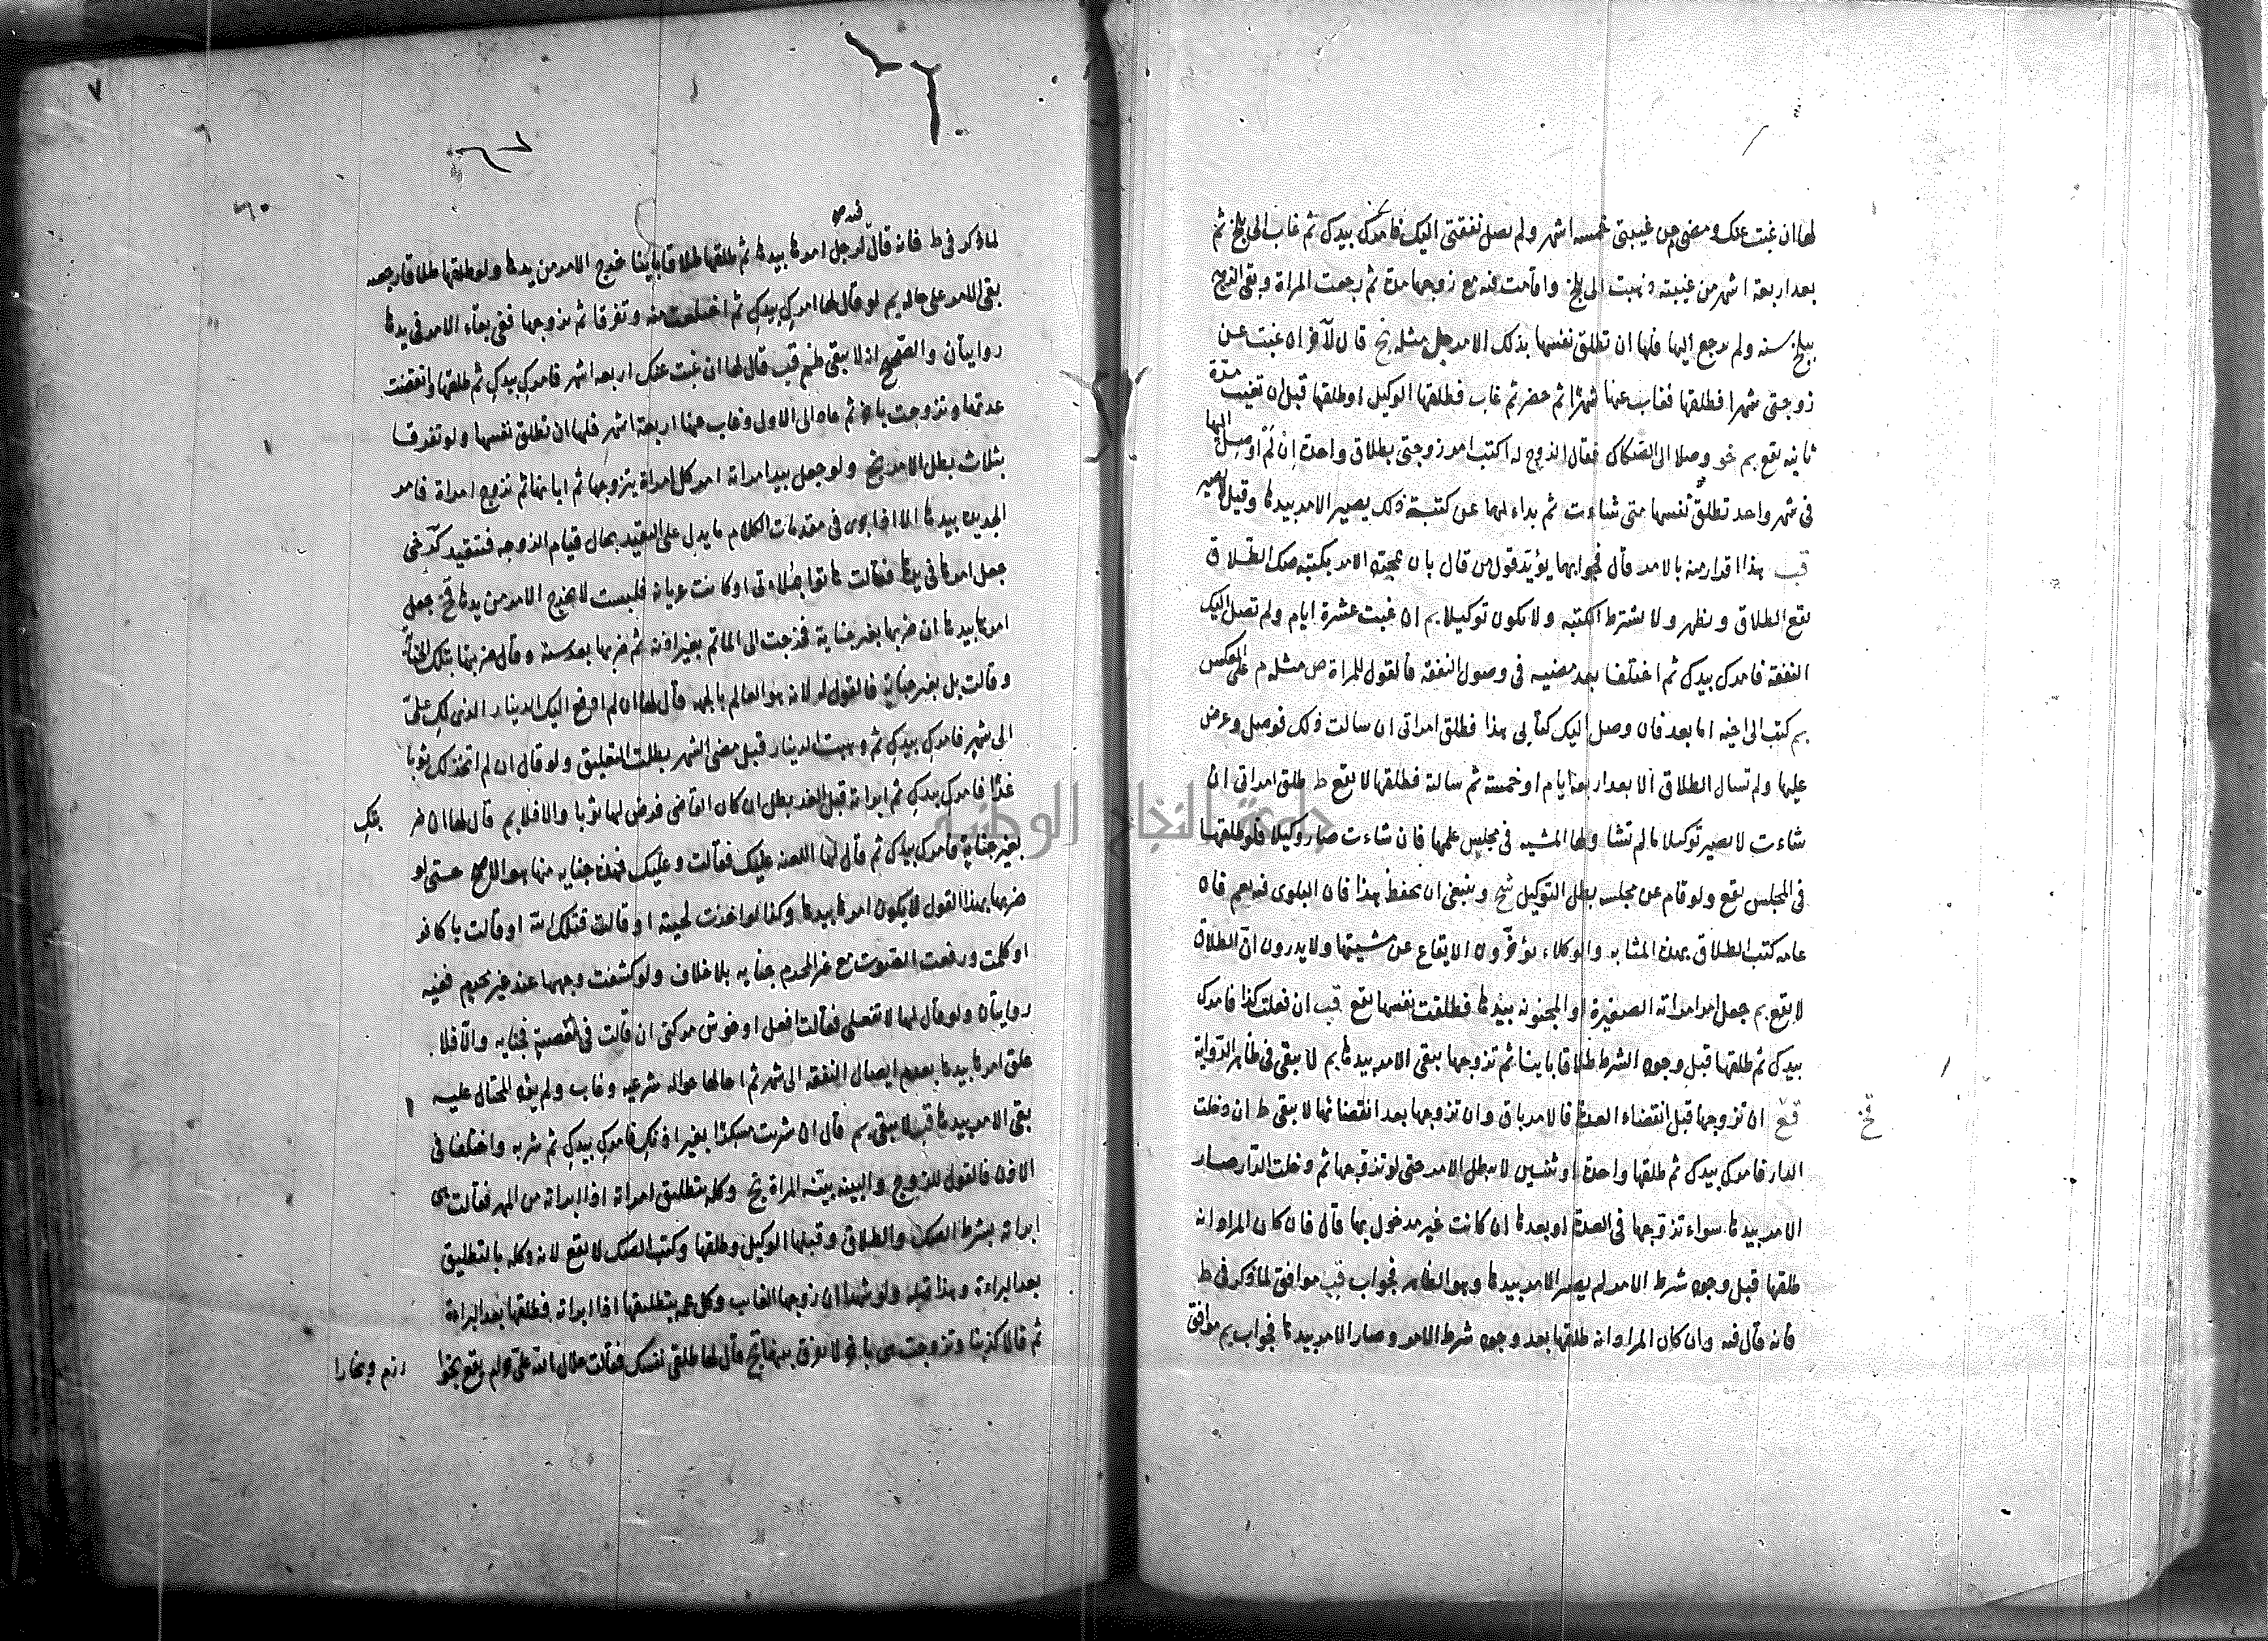 لها ان غبت عنك ومضى من غيبتي خمسة اشهر ولم يصل نفقتي اليك فامرك بيدك ثم غاب الى بلخ ثم
بعد اربعة اشهر من غيبته ذهبت الى بلخ واقامت فيه مع زوجها مدة ثم رجعت المراة وبقى الزوج
ببلخ سنه ولم يرجع اليها فلها ان تطلق نفسها بذلك الامر مثله قال لآخر ان غبت عن
زوجتي شهرا فطلقها فغاب عنها شهرًا ثم حضر ثم غاب فطلقها الوكيل او طلقها قبل ان تغيب مدة
ثانيه يقع وصلا الى الصكاك فقال الزوج له اكتب امر زوجتي بطلاق واحدة ان لم اوصل اليها
في شهر واحد تطلق نفسها متى شاءت ثم بداء لهما عن كتبة ذلك يصير الامر بيدها وقيل لا يصير
قب هذا اقرار منه بالامر قال فجوابهما يؤيد قول من قال بان بمجرد الامر بكتبه صك الطلاق
يقع الطلاق ويظهر ولا يشترط الكتبه ولا يكون توكيلا بم ان غبت عشرة ايام ولم تصل اليك
النفقة فامرك بيدك ثم اختلفا بعد مضيه في وصول النفقة فالقول للمراة ص مثله م على العكس
بم كتب الى اخيه اما بعد فان وصل اليك كتابي هذا فطلق امراتي ان سالت ذلك فوصل وعرض
عليها ولم تسال الطلاق الا بعد اربعة ايام او خمسة ثم سالته فطلقها لا يقع ط طلق امراتي ان
شاءت لا يصير توكيلا ما لم تشا ولها المشيه في مجلس علمها فان شاءت صار وكيلا فلو طلقها
في المجلس يقع ولو قام عن مجلسه بطل التوكيل شح وينبغي ان يحفظ هذا فان البلوى فيه يعم فان
عامه كتب الطلاق بهذه المثابه والوكلاء يؤخرون الايقاع عن مشيتها ولا يدرون ان الطلاق
لا يقع بم جعل امر امراته الصغيرة او المجنونه بيدها فطلقت نفسها يقع قب ان فعلت كذا فامرك
بيدك ثم طلقها قبل وجود الشرط طلاقا باينا ثم تزوجها يبقى الامر بيدها بم لا يبقى في ظاهر الرواية
قع ان تزوجها قبل انقضاء العدة فالامر باق وان تزوجها بعد انقضائها لا يبقى ط ان دخلت
الدار فامرك بيدك ثم طلقها واحدة او ثنتين لا يبطل الامر حتى لو تزوجها ثم دخلت الدار صار
الامر بيدها سواء تزوجها في العدة او بعدها ان كانت غير مدخول بها قال فان كان المراد انه
طلقها قبل وجود شرط الامر لم يصر الامر بيدها وهو الظاهر فجواب قب موافق لما ذكر في ط
فانه قال فيه وان كان المراد انه طلقها بعد وجود شرط الامر وصار الامر بيدها فجواب بم موافق
٧
لما ذكر في ط فانه قال لرجل امرها بيدها ثم طلقها طلاقا باينا خرج الامر من يدها ولو طلقها طلاقا رجعيه
بقى الامر على حاله بم لو قال لها امرك بيدك ثم اختلعت منه وتفرقا ثم تزوجها ففي بقاء الامر في يدها
روايتان والصحيح ان لا يبقى قب قال لها ان غبت عنك اربعه اشهر فامرك بيدك ثم طلقها وانقضت
عدتها وتزوجت باخر ثم عاد الى الاول وغاب عنها اربعة اشهر فلها ان تطلق نفسها ولو تفرقا
بثلاث بطل الامر ولو جعل بيد امراته امر كل امراة يتزوجها ثم ابانها ثم تزوج امراة فامر
الجديده بيدها الا اذا جرى في مقدمات الكلام ما يدل على التقيد بحال قيام الزوجيه فتتقيد
جعل امرها في يدها فقالت او كانت عريانه فلبست لا يخرج الامر من يدها جعل
امرها بيدها ان ضربها بغير جناية فخرجت الى الماتم بغير اذنه ثم ضربها بعد سنه وقال ضربتها بتلك الجناية
وقالت بل بغير جناية فالقول له لانه هو العالم قال لها ان لم ادفع اليك الدينار الذي لك علي
الى شهر فامرك بيدك ثم وهبت الدينار قبل مضي الشهر بطلت التعليق ولو قال ان لم اتخذ لك ثوبا
غدًا فامرك بيدك ثم ابراته قبل الغد بطل ان كان القاضي فرض لها ثوبا والا فلا بم قال لها ان ضربتك
بغير جناية فامرك بيدك ثم قال لها اللعنه عليك فقالت وعليك فهذه جنايه منها هو الاصح حتى لو
ضربها بهذا القول لا يكون امرها بيدها وكذا لو اخذت لحيته او قالت او قالت يا كافر
او كلمت ورفعت الصوت مع غير المحرم جنايه بلا خلاف ولو كشفت وجهها عند غير محرم ففيه
روايتان ولو قال لها لا تفعلي فقالت افعل ان قالت في المعصية فجنايه والا فلا
علق امرها بيدها بعدم ايصال النفقه الى شهر ثم احالها حواله شرعيه وغاب ولم يؤد المحتال عليه
بقى الامر بيدها قب لا يبقى بم قال ان شربت مسكرًا بغير اذنك فامرك بيدك ثم شربه واختلفا في
الاذن فالقول للزوج والبينه بينه المراة وكله بتطليق امراته اذا ابراته من المهر فقالت
ابراته بشرط الصك والطلاق وقبلها الوكيل وطلقها وكتب الصك لا يقع لانه وكله بالتطليق
بعد البراءة وهذا قبله ولو شهدا ان زوجها الغايب وكل بتطليقها اذا ابراته فطلقها بعد البراءة
ثم قالا كذبنا وتزوجت هي باخر لا يفرق بينهما قال لها طلقي نفسك فقالت ولم يقع بخوارزم وبخارا